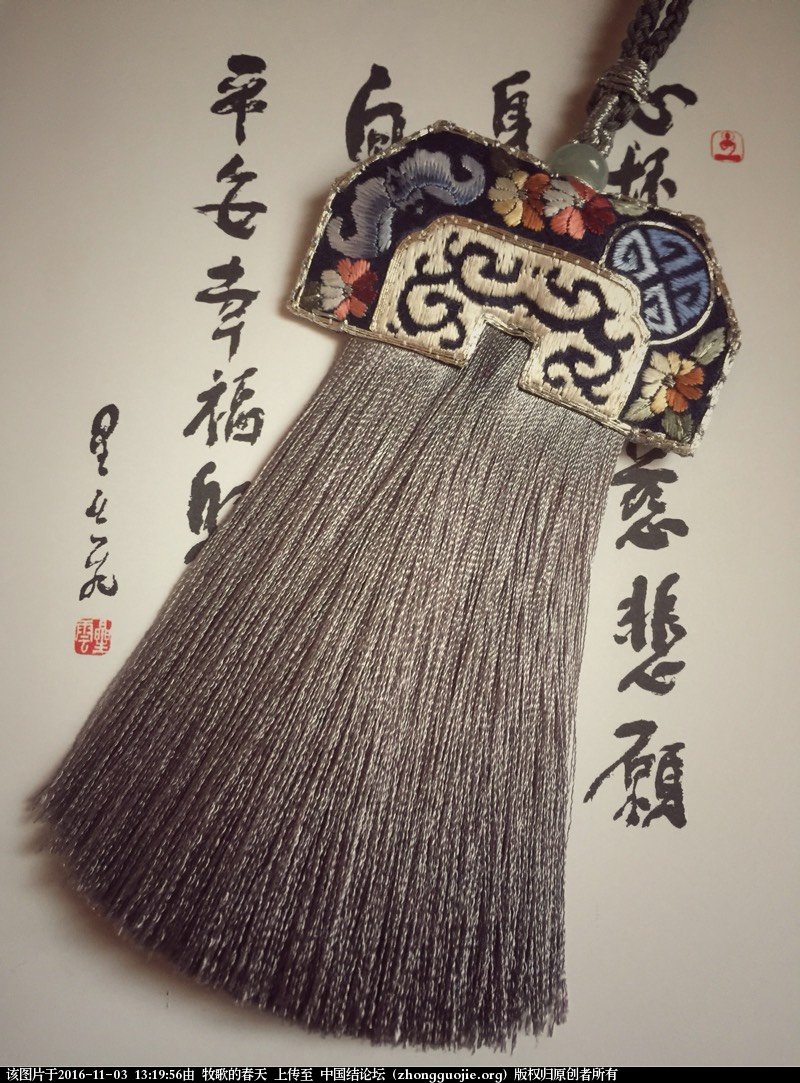 心怀
慈悲願
身
自
平安幸福
星雲
该图片于2016-11-03 13:19:56由 牧歌的春天 上传至 中国结论坛 (zhongguojie.org) 版权归原创者所有